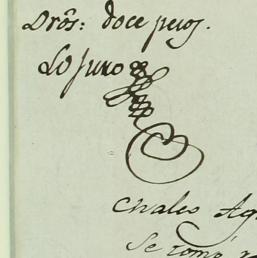 Drôs: doce pesos.
Lo juro
Chales Ag
Se tomó